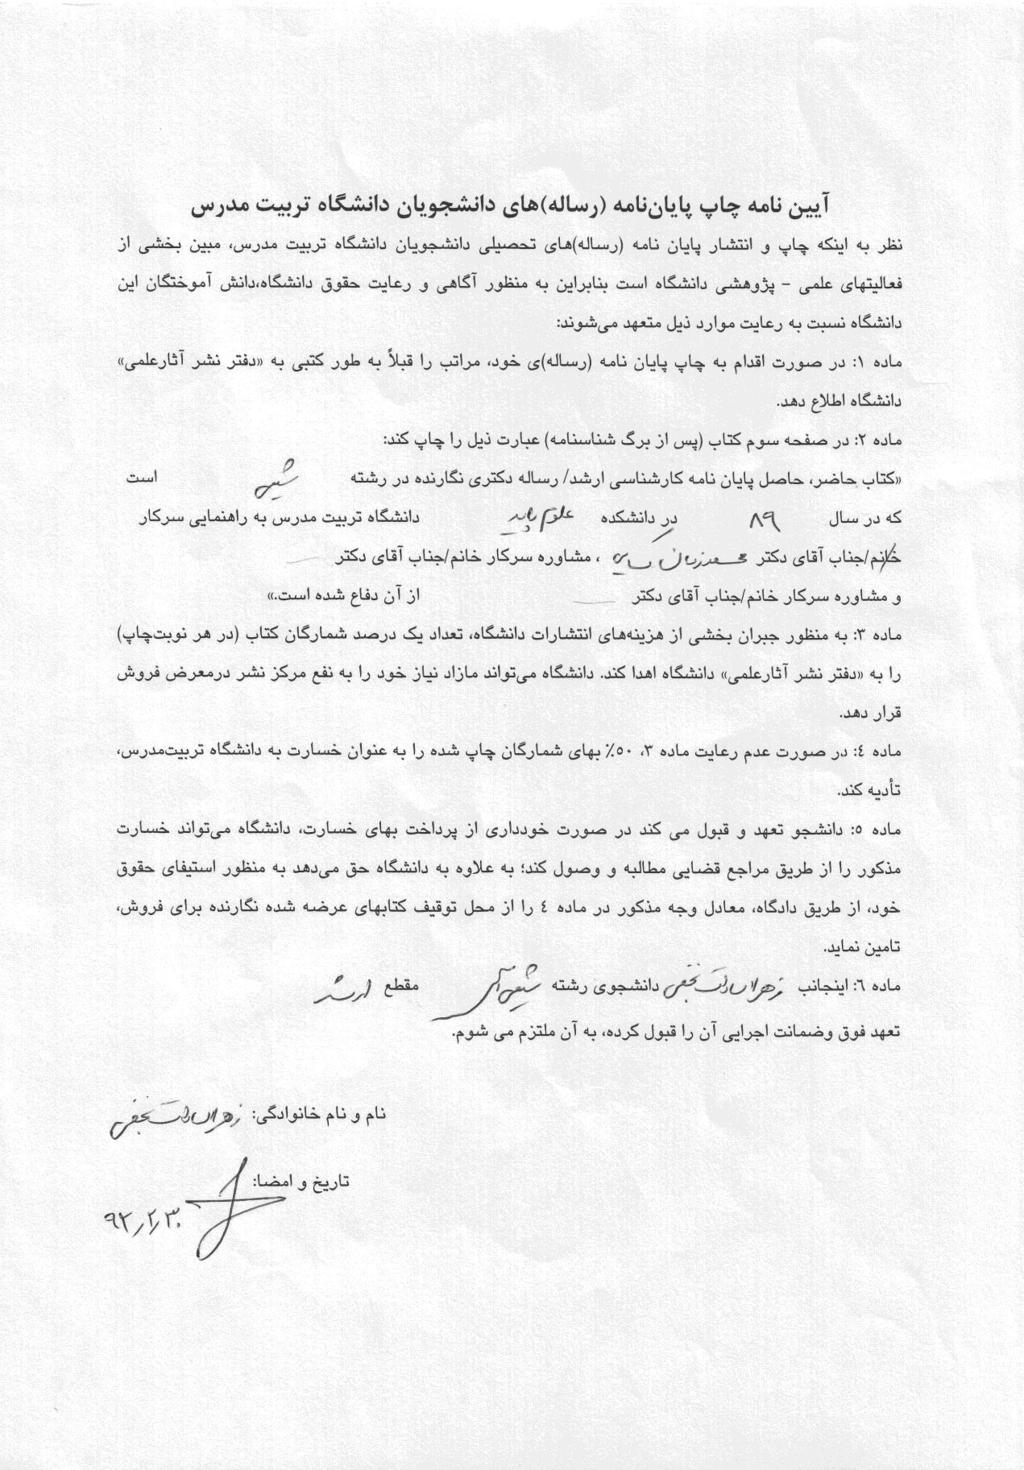 آیین نامه چاپ پایان‌نامه (رساله)های دانشجویان دانشگاه تربیت مدرس
نظر به اینکه چاپ و انتشار پایان نامه (رساله)های تحصیلی دانشجویان دانشگاه تربیت مدرس، مبین بخشی از
فعالیتهای علمی - پژوهشی دانشگاه است بنابراین به منظور آگاهی و رعایت حقوق دانشگاه،دانش آموختگان این
دانشگاه نسبت به رعایت موارد ذیل متعهد می‌شوند:
ماده ۱: در صورت اقدام به چاپ پایان نامه (رساله)ی خود، مراتب را قبلاً به طور کتبی به «دفتر نشر آثارعلمی»
دانشگاه اطلاع دهد.
ماده ۲: در صفحه سوم کتاب (پس از برگ شناسنامه) عبارت ذیل را چاپ کند:
«کتاب حاضر، حاصل پایان نامه کارشناسی ارشد/ رساله دکتری نگارنده در رشته شیمی است
که در سال ۸۹ در دانشکده علوم پایه دانشگاه تربیت مدرس به راهنمایی سرکار
خانم/جناب آقای دکتر ، مشاوره سرکار خانم/جناب آقای دکتر
و مشاوره سرکار خانم/جناب آقای دکتر از آن دفاع شده است.»
ماده ۳: به منظور جبران بخشی از هزینه‌های انتشارات دانشگاه، تعداد یک درصد شمارگان کتاب (در هر نوبت‌چاپ)
را به «دفتر نشر آثارعلمی» دانشگاه اهدا کند. دانشگاه می‌تواند مازاد نیاز خود را به نفع مرکز نشر درمعرض فروش
قرار دهد.
ماده ٤: در صورت عدم رعایت ماده ۳، ۵۰٪ بهای شمارگان چاپ شده را به عنوان خسارت به دانشگاه تربیت‌مدرس،
تأدیه کند.
ماده ۵: دانشجو تعهد و قبول می کند در صورت خودداری از پرداخت بهای خسارت، دانشگاه می‌تواند خسارت
مذکور را از طریق مراجع قضایی مطالبه و وصول کند؛ به علاوه به دانشگاه حق می‌دهد به منظور استیفای حقوق
خود، از طریق دادگاه، معادل وجه مذکور در ماده ٤ را از محل توقیف کتابهای عرضه شده نگارنده برای فروش،
تامین نماید.
ماده ٦: اینجانب زهرا سادات نجفی دانشجوی رشته شیمی آلی مقطع ارشد
تعهد فوق وضمانت اجرایی آن را قبول کرده، به آن ملتزم می شوم.
نام و نام خانوادگی: زهرا سادات نجفی
تاریخ و امضا:
۹۲٫۲٫۳۰